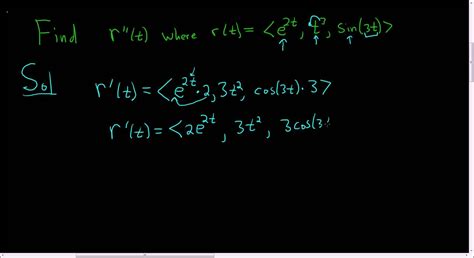 Find r''(t) where r(t) = <e^{2t}, t^3, sin(3t)>
Sol r'(t) = <e^{2t}·2, 3t^2, cos(3t)·3>
r'(t) = <2e^{2t}, 3t^2, 3cos(3t